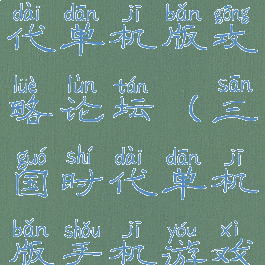 dài dān jī bǎn gōng
代单机版攻
lüè lùn tán sān
略论坛（三
guó shí dài dān jī
国时代单机
bǎn shǒu jī yóu xì
版手机游戏